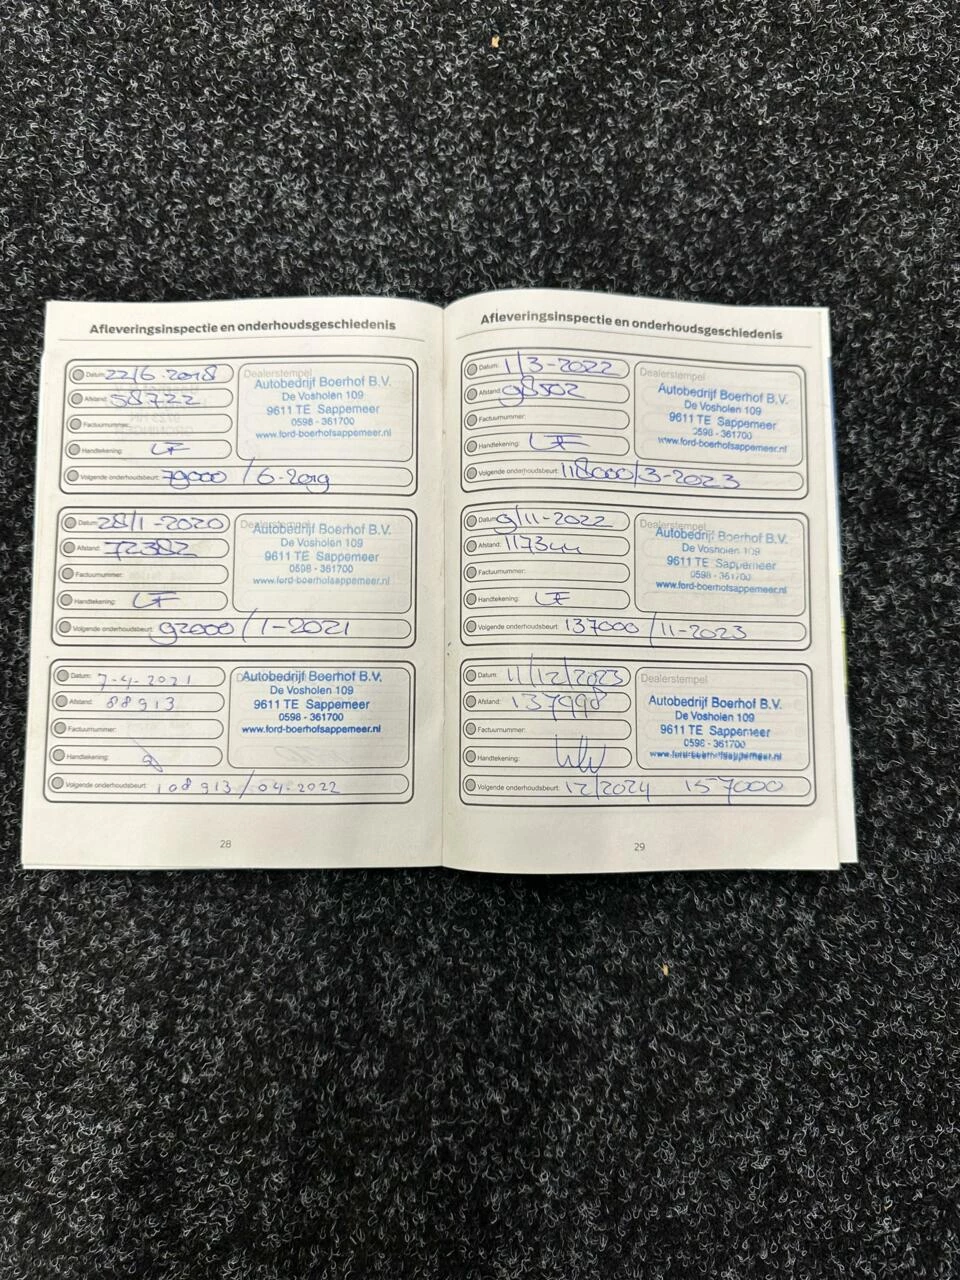 Afleveringsinspectie en onderhoudsgeschiedenis
Datum: 22/6-2018
Afstand: 58722
Factuurnummer:
Handtekening:
Dealerstempel
Autobedrijf Boerhof B.V.
De Vosholen 109
9611 TE Sappemeer
0598 - 361700
www.ford-boerhofsappemeer.nl
Volgende onderhoudsbeurt: 79000 / 6-2019
Datum: 28/1-2020
Afstand: 72382
Factuurnummer:
Handtekening:
Dealerstempel
Autobedrijf Boerhof B.V.
De Vosholen 109
9611 TE Sappemeer
0598 - 361700
www.ford-boerhofsappemeer.nl
Volgende onderhoudsbeurt: 92000 / 1-2021
Datum: 7-4-2021
Afstand: 88913
Factuurnummer:
Handtekening:
Autobedrijf Boerhof B.V.
De Vosholen 109
9611 TE Sappemeer
0598 - 361700
www.ford-boerhofsappemeer.nl
Volgende onderhoudsbeurt: 108913 / 04-2022
28
Afleveringsinspectie en onderhoudsgeschiedenis
Datum: 1/3-2022
Afstand: 98502
Factuurnummer:
Handtekening:
Dealerstempel
Autobedrijf Boerhof B.V.
De Vosholen 109
9611 TE Sappemeer
0598 - 361700
www.ford-boerhofsappemeer.nl
Volgende onderhoudsbeurt: 118000/3-2023
Datum: 9/11-2022
Afstand:
Factuurnummer:
Handtekening:
Dealerstempel
Autobedrijf Boerhof B.V.
De Vosholen 109
9611 TE Sappemeer
0598 - 361700
www.ford-boerhofsappemeer.nl
Volgende onderhoudsbeurt: 137000 / 11-2023
Datum: 11/12/2023
Afstand: 137998
Factuurnummer:
Handtekening:
Dealerstempel
Autobedrijf Boerhof B.V.
De Vosholen 109
9611 TE Sappemeer
0598 - 361700
www.ford-boerhofsappemeer.nl
Volgende onderhoudsbeurt: 12/2024 157000
29